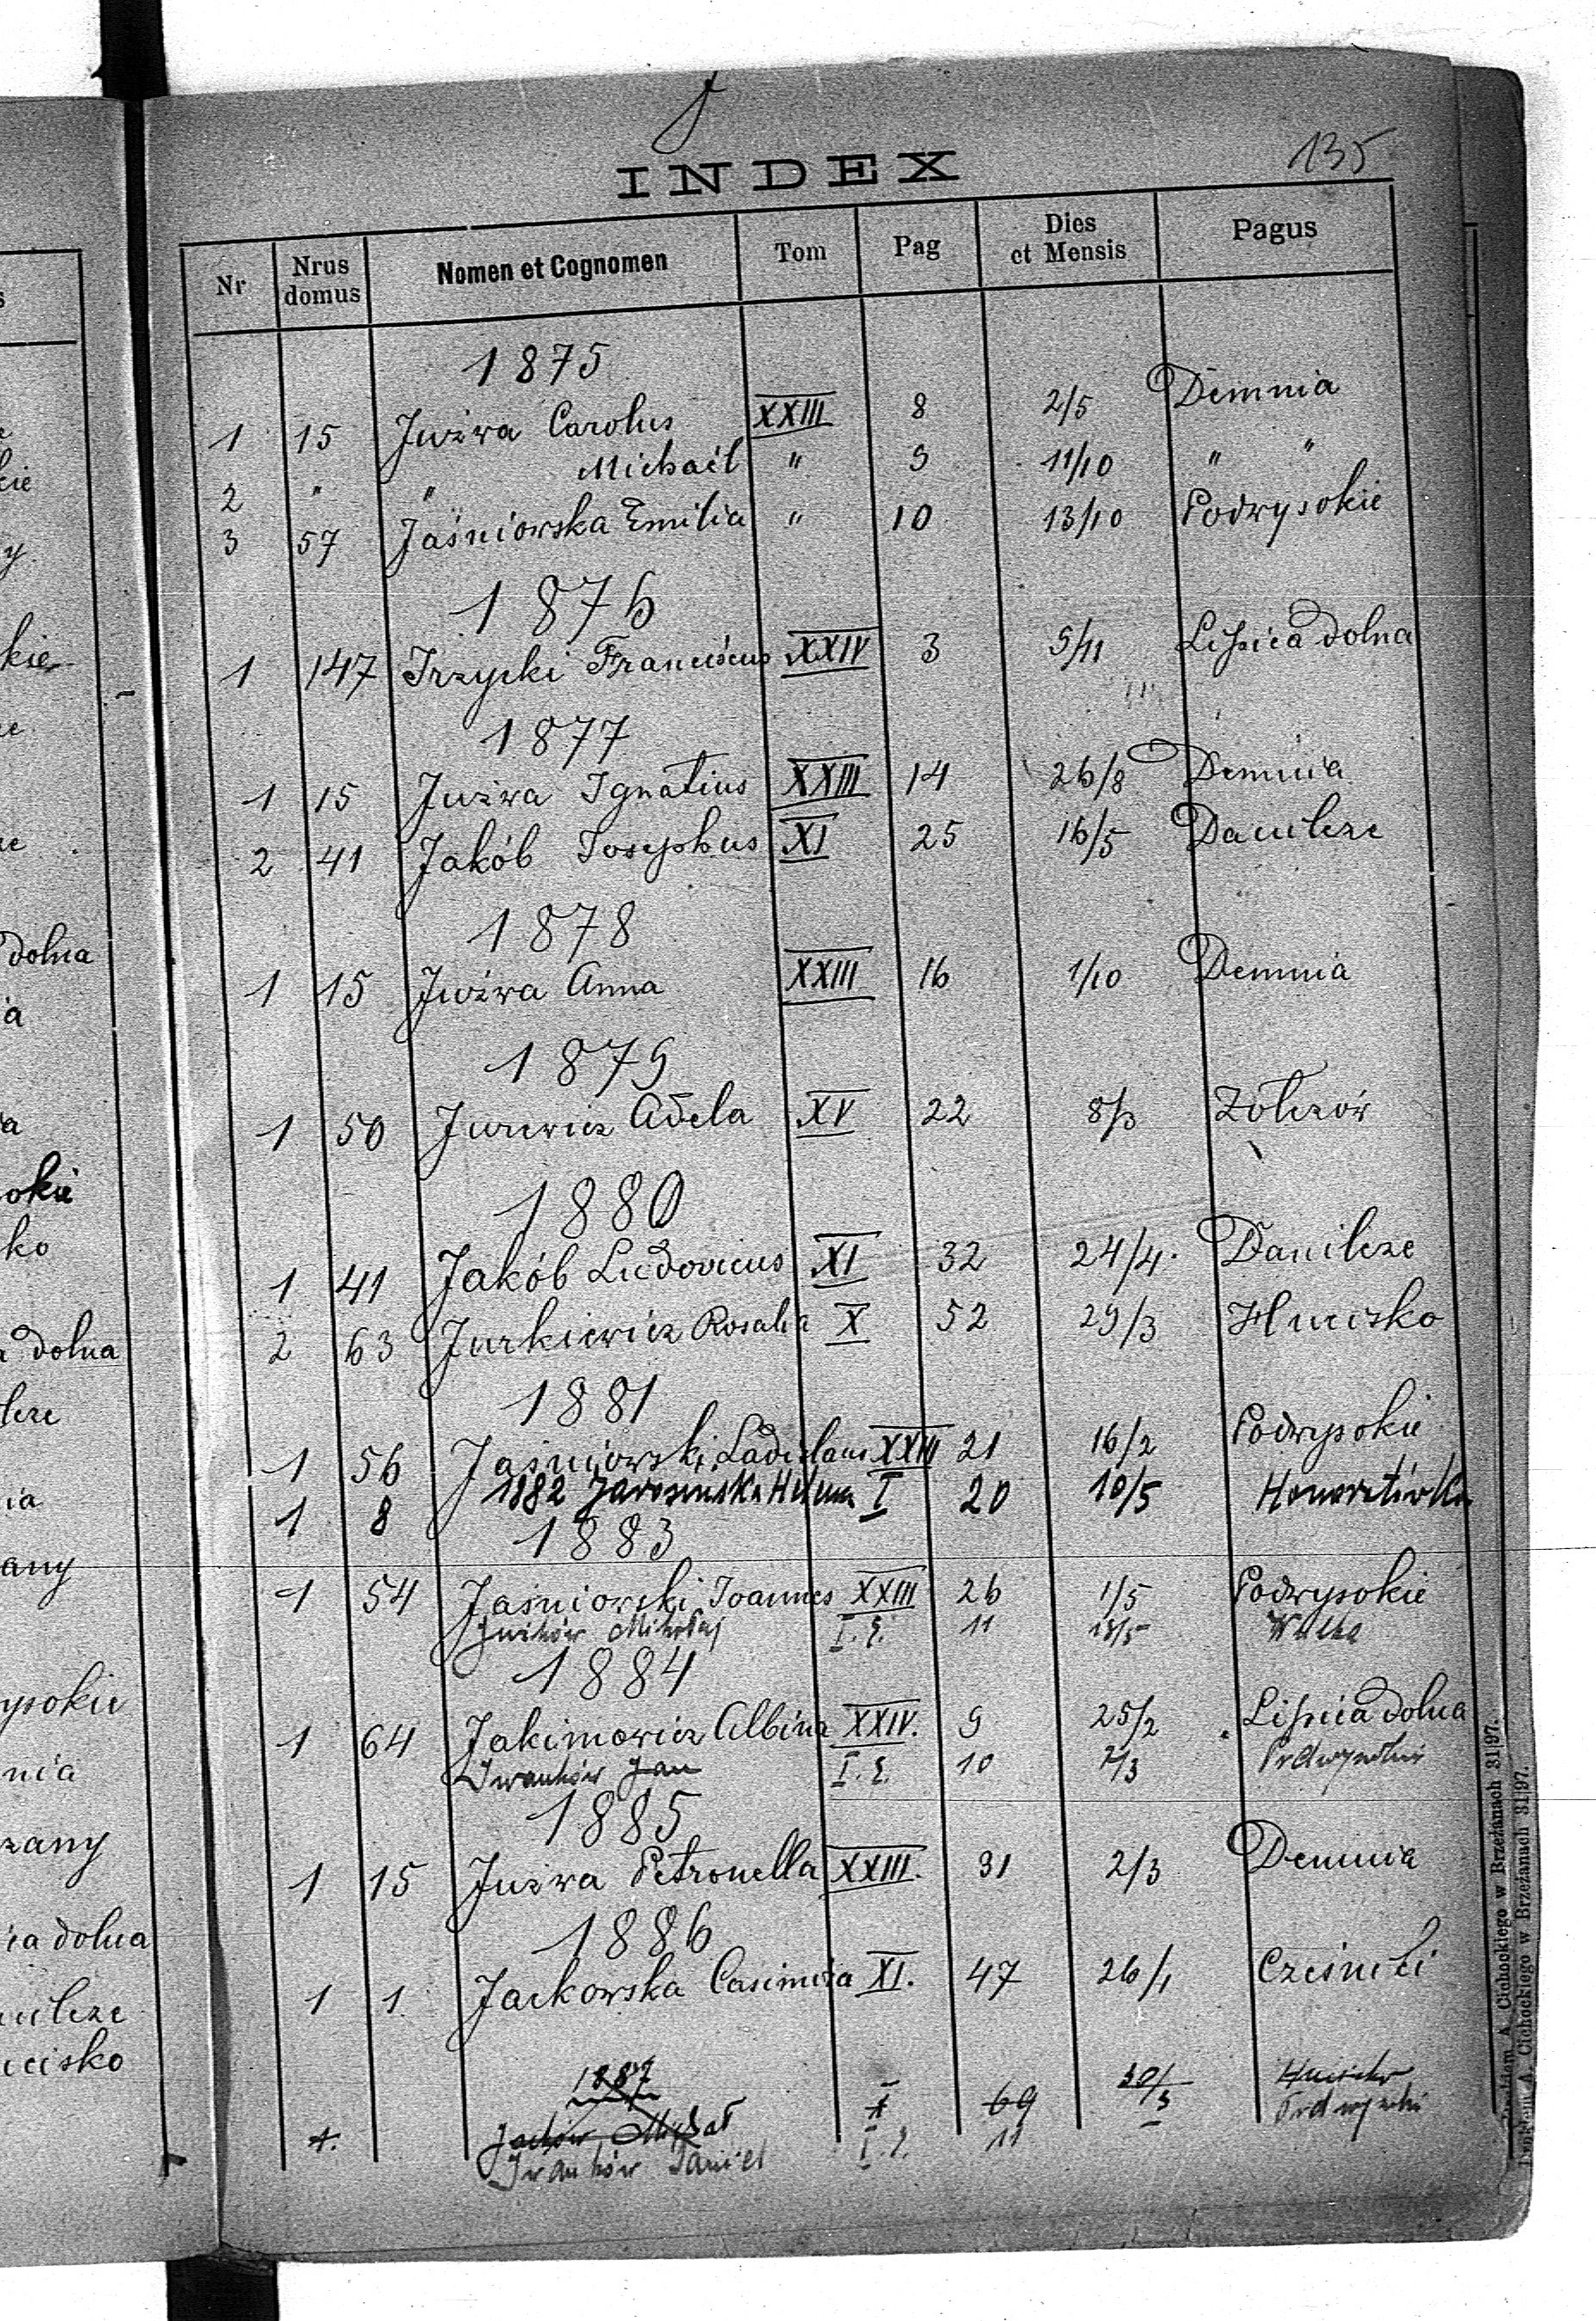 J
135
INDEX
Nr Nrus domus Nomen et Cognomen Tom Pag Dies et Mensis Pagus
1875
1 15 Juźwa Carolus XXIII 8 2/5 Demnia
2 " " Michaël " 9 11/10 " "
3 57 Jaśniowska Emilia " 10 13/10 Podwysokie
1876
1 147 Irzycki Franciscus XXIV 3 9/11 Lipica dolna
1877
1 15 Juźwa Ignatius XXIII 14 26/8 Demnia
2 41 Jakób Josephus XI 25 16/5 Danilcze
1878
1 15 Juźwa Anna XXIII 16 1/10 Demnia
1879
1 50 Jurewicz Adela XV 22 8/3 Żołczów
1880
1 41 Jakób Ludovicus XI 32 24/4. Danilcze
2 63 Jurkiewicz Rosalia X 52 29/3 Hucisko
1881
1 56 Jaśniowski Ladislaus XXIII 21 16/2 Podwysokie
1 8 1882 Jarosińska Helena I 20 10/5 Honoratówka
1883
1 54 Jaśniowski Joannes XXIII 26 1/5 Podwysokie
Iwańków Mikołaj I. E. 11 Wulka
1884
1 64 Jakimowicz Albina XXIV. 9 25/2 Lipica dolna
Iwańków Jan I. E. 10 2/3
1885
1 15 Juźwa Petronella XXIII. 31 2/3 Demnia
1886
1 1 Jackowska Casimira XI. 47 26/1 Cześniki
1887
1. Jachów Michał X 69 30/3 Hucisko
Iwańków Daniel I. E. 11
Drukiem A. Cichockiego w Brzeżanach 31|97.
Drukiem A. Cichockiego w Brzeżanach 31|97.